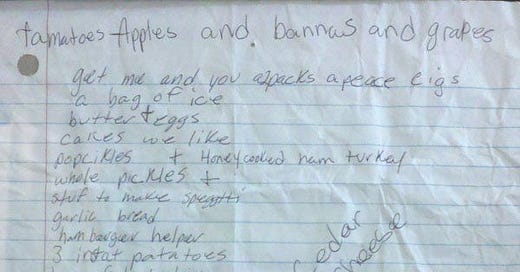 tamatoes Apples and bannas and grapes
get me and you 2packs apeace cigs
a bag of ice
butter + eggs
cakes we like
popcikles + Honeycooked ham turkey
whole pickles +
stuf to make spegtti
garlic bread
hambarger helper
3 instat patatoes
Cedar
cheese